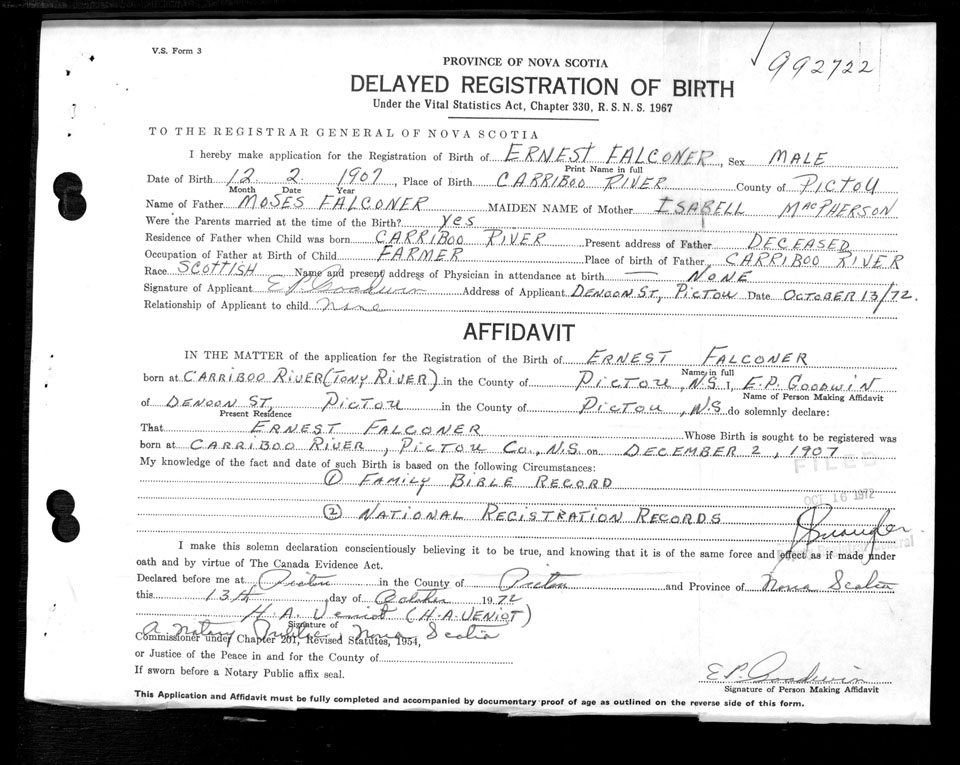 V.S. Form 3
992722
PROVINCE OF NOVA SCOTIA
DELAYED REGISTRATION OF BIRTH
Under the Vital Statistics Act, Chapter 330, R.S.N.S. 1967
TO THE REGISTRAR GENERAL OF NOVA SCOTIA
I hereby make application for the Registration of Birth of ERNEST FALCONER, Sex MALE
Print Name in full
Date of Birth 12 2 1907, Place of Birth CARRIBOO RIVER County of PICTOU
Month Date Year
Name of Father MOSES FALCONER MAIDEN NAME of Mother ISABELL MACPHERSON
Were the Parents married at the time of the Birth? yes
Residence of Father when Child was born CARRIBOO RIVER Present address of Father DECEASED
Occupation of Father at Birth of Child FARMER Place of birth of Father CARRIBOO RIVER
Race SCOTTISH Name and present address of Physician in attendance at birth — NONE
Signature of Applicant E P Goodwin Address of Applicant DENOON ST, PICTOU Date OCTOBER 13/72.
Relationship of Applicant to child None
AFFIDAVIT
IN THE MATTER of the application for the Registration of the Birth of ERNEST FALCONER
Name in full
born at CARRIBOO RIVER (TONY RIVER) in the County of PICTOU, N.S. I, E.P. GOODWIN
Name of Person Making Affidavit
of DENOON ST, PICTOU in the County of PICTOU, N.S do solemnly declare:
Present Residence
That ERNEST FALCONER Whose Birth is sought to be registered was
born at CARRIBOO RIVER, PICTOU CO., N.S. on DECEMBER 2, 1907
FILED
My knowledge of the fact and date of such Birth is based on the following Circumstances:
① FAMILY BIBLE RECORD
OCT 16 1972
② NATIONAL REGISTRATION RECORDS
I make this solemn declaration conscientiously believing it to be true, and knowing that it is of the same force and effect as if made under
oath and by virtue of The Canada Evidence Act.
Declared before me at Pictou in the County of Pictou and Province of Nova Scotia
this 13th day of October 1972
H. A. Veniot (H.A. VENIOT)
Signature of
A Notary Public, Nova Scotia
Commissioner under Chapter 201, Revised Statutes, 1954,
or Justice of the Peace in and for the County of
If sworn before a Notary Public affix seal.
E P Goodwin
Signature of Person Making Affidavit
This Application and Affidavit must be fully completed and accompanied by documentary proof of age as outlined on the reverse side of this form.